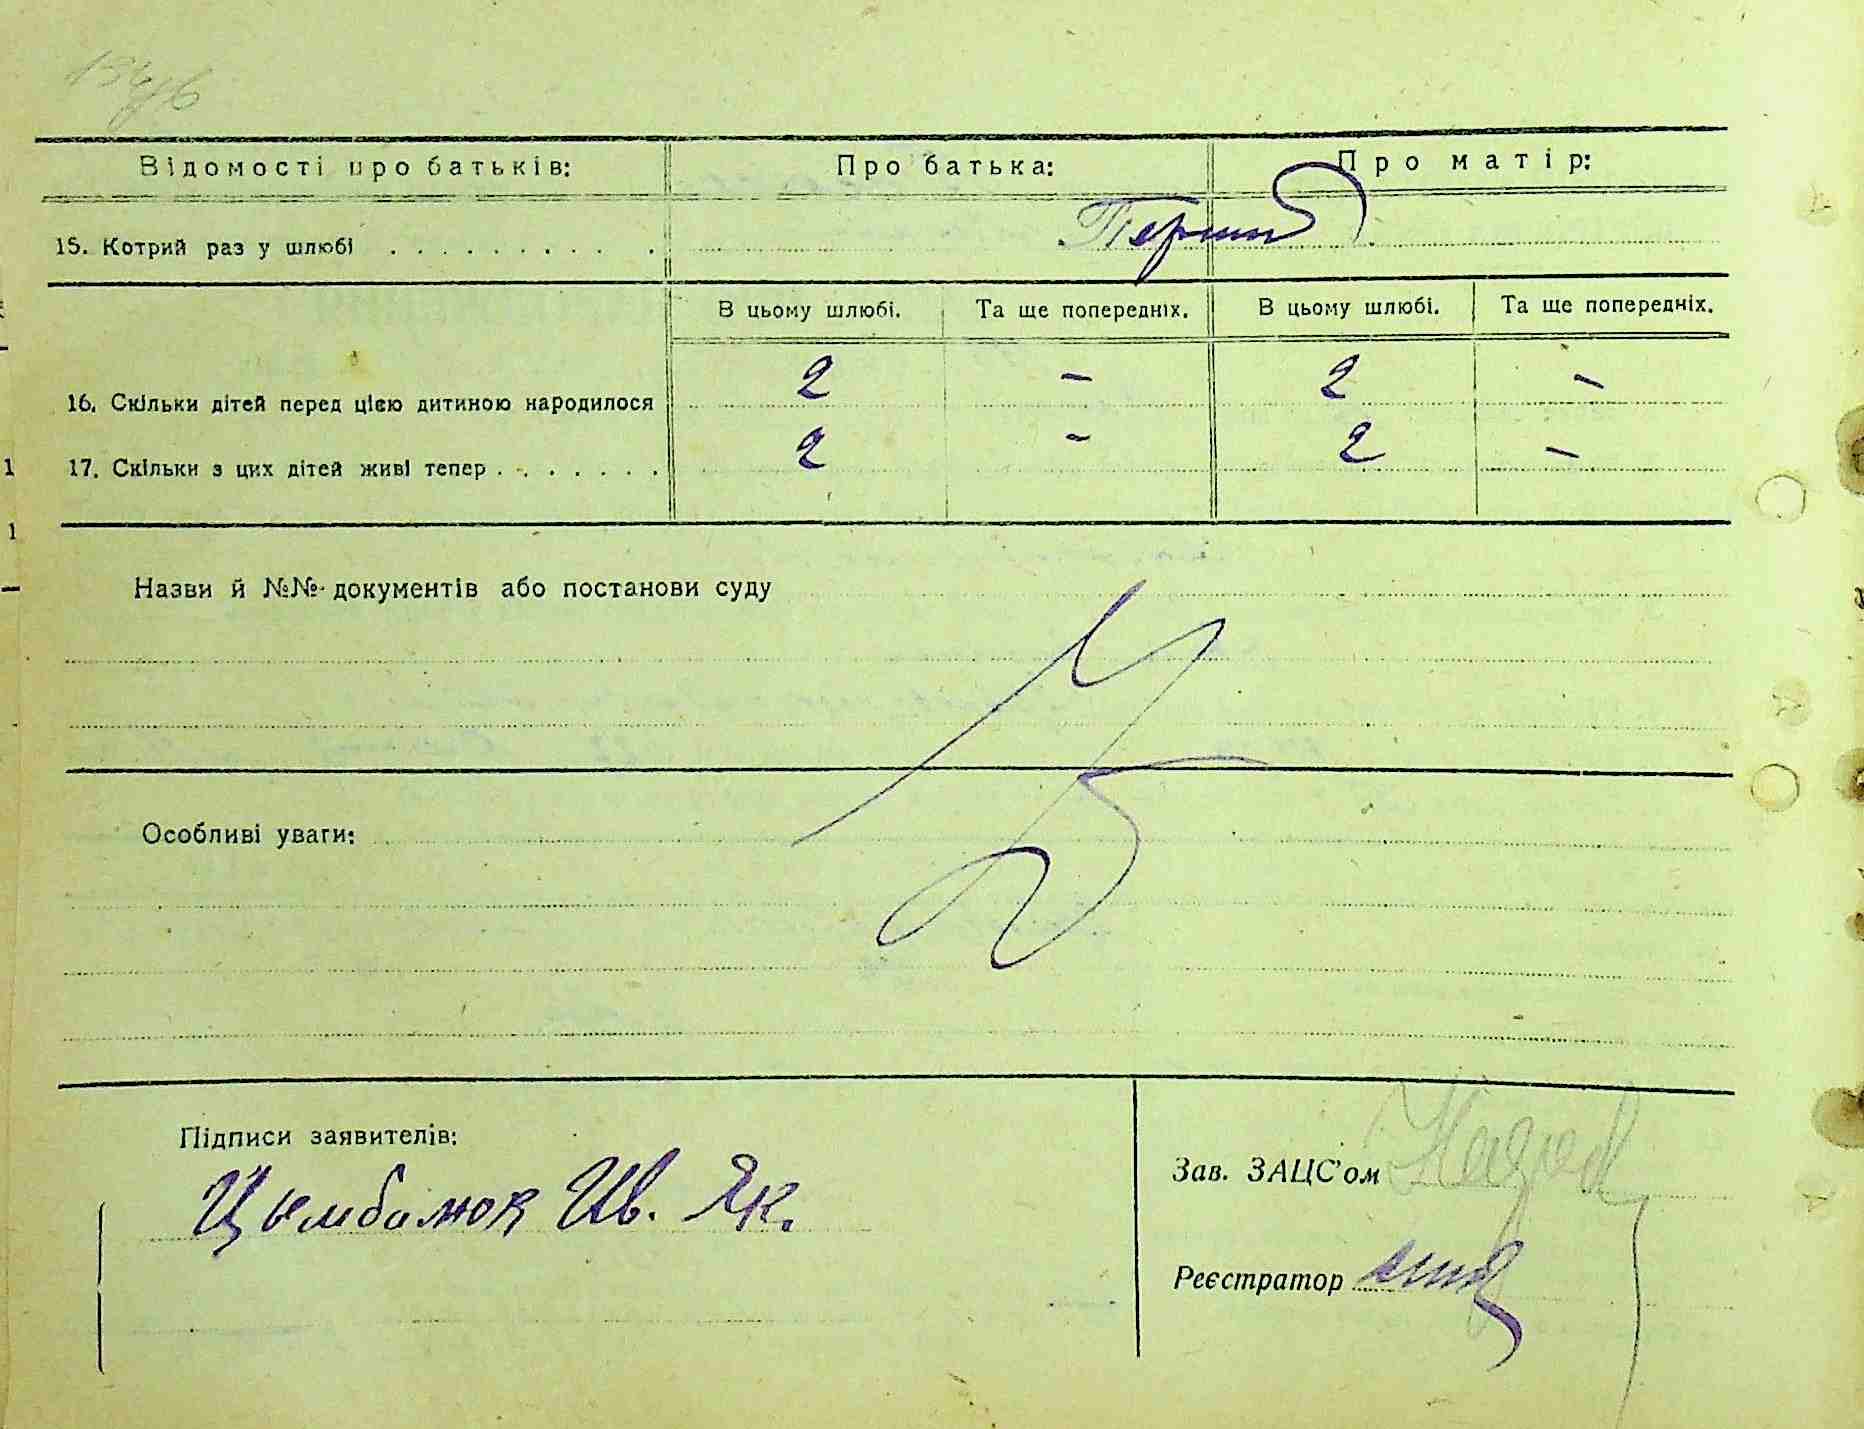 154/6
Відомості про батьків: Про батька: Про матір:
15. Котрий раз у шлюбі . . . . . . . . . Перший
В цьому шлюбі. Та ще попередніх. В цьому шлюбі. Та ще попередніх.
16. Скільки дітей перед цією дитиною народилося 2 - 2 -
17. Скільки з цих дітей живі тепер . . . . . . . 2 - 2 -
Назви й №№ документів або постанови суду
Особливі уваги:
Підписи заявителів:
Цымбалюк Ив. Як.
Зав. ЗАЦС'ом
Реєстратор